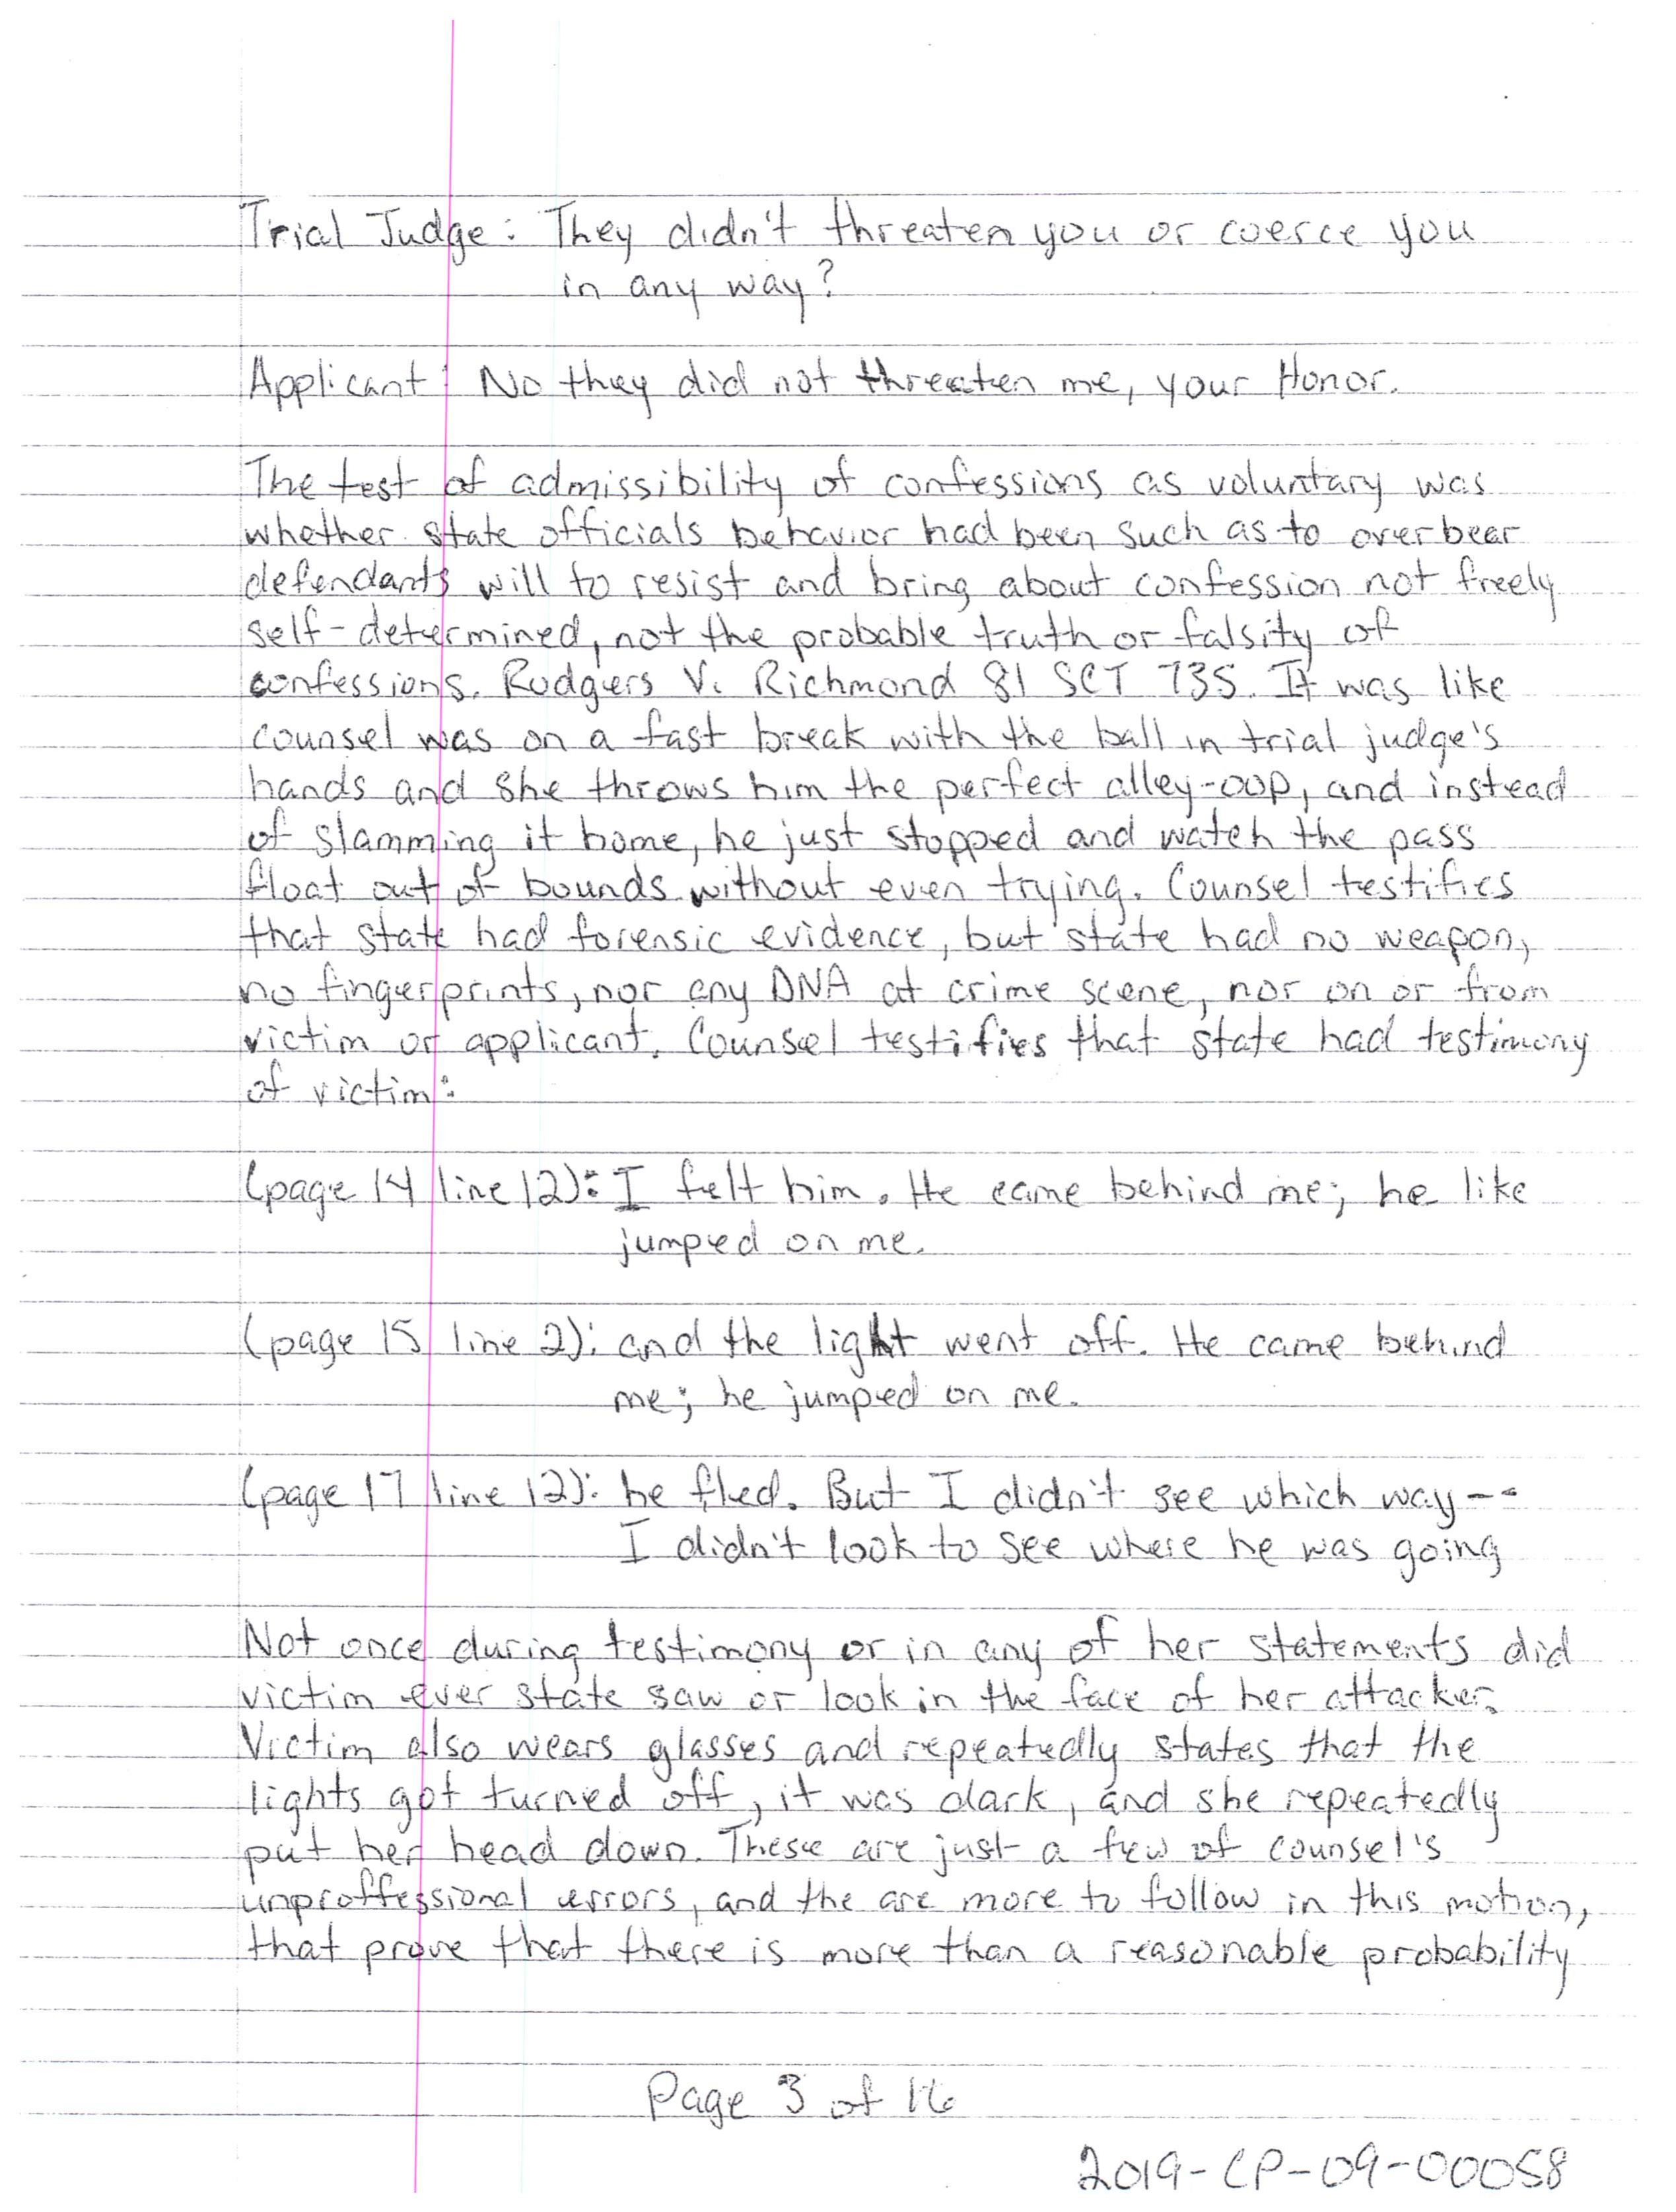 Trial Judge: They didn't threaten you or coerce you
in any way?
Applicant: No they did not threaten me, your Honor.
The test of admissibility of confessions as voluntary was
whether state officials behavior had been such as to overbear
defendants will to resist and bring about confession not freely
self-determined, not the probable truth or falsity of
confessions. Rodgers V. Richmond 81 SCT 735. It was like
counsel was on a fast break with the ball in trial judge's
hands and she throws him the perfect alley-oop, and instead
of slamming it home, he just stopped and watch the pass
float out of bounds without even trying. Counsel testifies
that state had forensic evidence, but state had no weapon,
no fingerprints, nor any DNA at crime scene, nor on or from
victim or applicant. Counsel testifies that state had testimony
of victim:
(page 14 line 12): I felt him. He came behind me; he like
jumped on me.
(page 15 line 2): and the light went off. He came behind
me; he jumped on me.
(page 17 line 12): he fled. But I didn't see which way--
I didn't look to see where he was going
Not once during testimony or in any of her statements did
victim ever state saw or look in the face of her attacker.
Victim also wears glasses and repeatedly states that the
lights got turned off, it was dark, and she repeatedly
put her head down. These are just a few of counsel's
unproffessional errors, and the are more to follow in this motion,
that prove that there is more than a reasonable probability
Page 3 of 16
2019-CP-09-00058